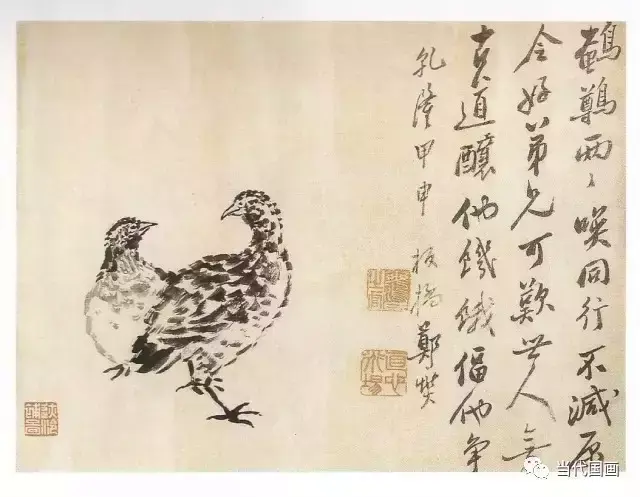 鵪鶉兩〻喚同行不減原
令好弟兄可歎世人無
古道釀他饑餓偪他争
乾隆甲申 板橋鄭燮
当代国画